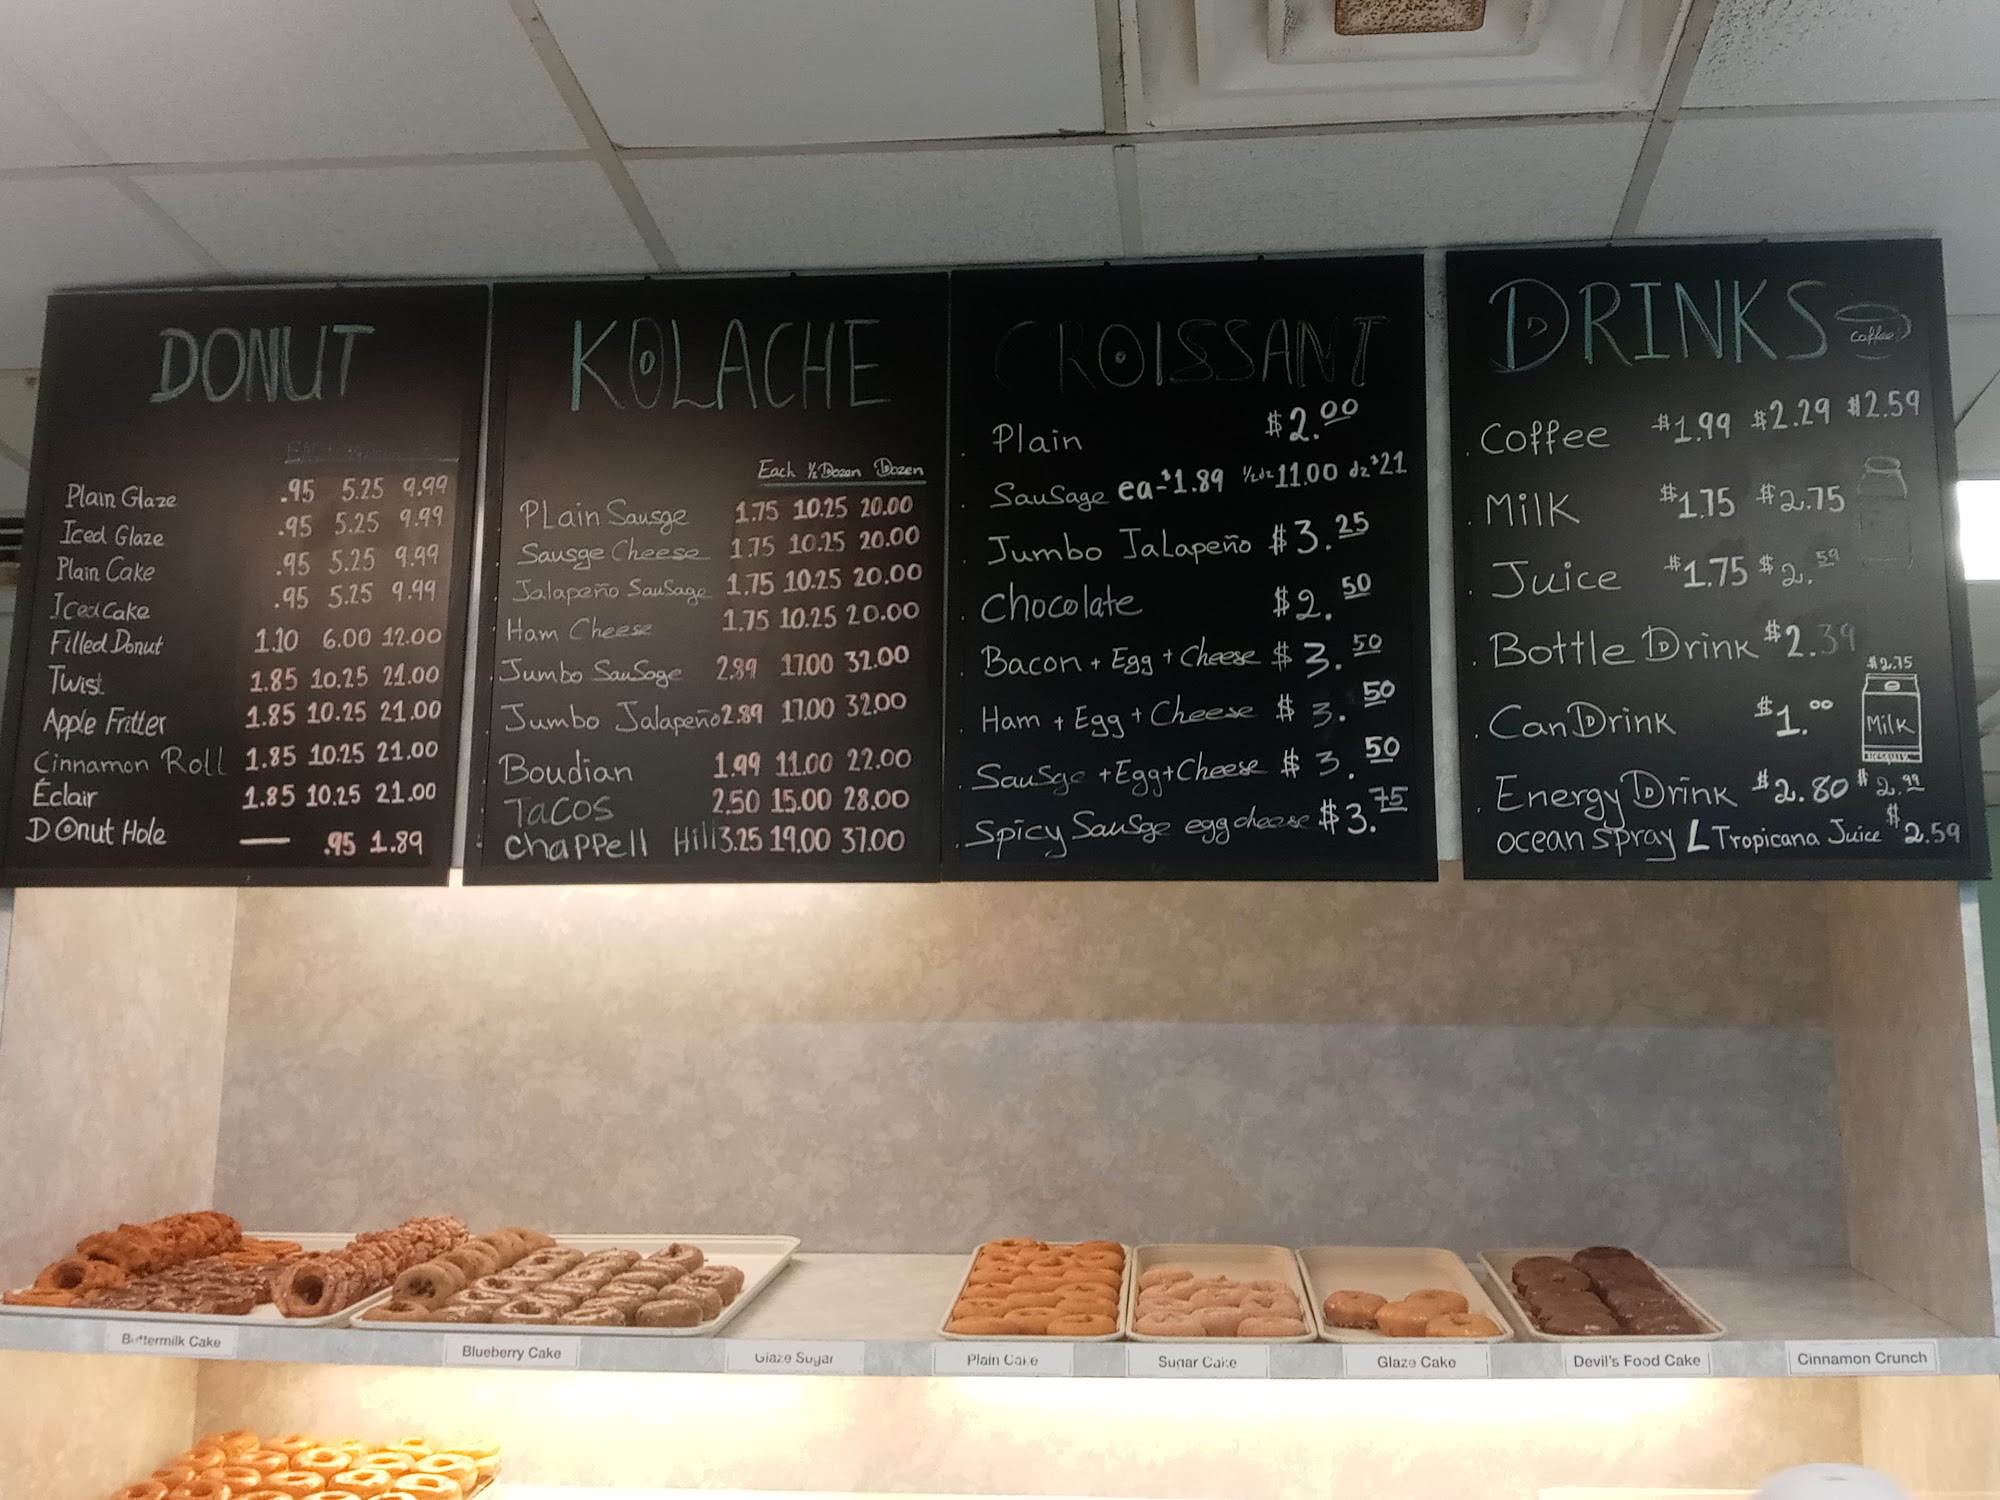 DONUT
Plain Glaze .95 5.25 9.99
Iced Glaze .95 5.25 9.99
Plain Cake .95 5.25 9.99
Iced Cake .95 5.25 9.99
Filled Donut 1.10 6.00 12.00
Twist 1.85 10.25 21.00
Apple Fritter 1.85 10.25 21.00
Cinnamon Roll 1.85 10.25 21.00
Éclair 1.85 10.25 21.00
DOnut Hole — .95 1.89
KOLACHE
Each ½ Dozen Dozen
PLain Sausge 1.75 10.25 20.00
Sausge Cheese 1.75 10.25 20.00
Jalapeño Sausage 1.75 10.25 20.00
Ham Cheese 1.75 10.25 20.00
Jumbo Sausage 2.89 17.00 32.00
Jumbo Jalapeño 2.89 17.00 32.00
Boudian 1.99 11.00 22.00
TACOS 2.50 15.00 28.00
Chappell Hill 3.25 19.00 37.00
CROISSANT
Plain $2.00
Sausage ea-$1.89 ½dz 11.00 dz $21
Jumbo JaLapeño $3.25
Chocolate $2.50
Bacon + Egg + Cheese $3.50
Ham + Egg + Cheese $3.50
Sausge + Egg + Cheese $3.50
Spicy Sausge egg cheese $3.75
DRINKS
Coffee
Coffee $1.99 $2.29 $2.59
Milk $1.75 $2.75
Juice $1.75 $2.59
Bottle Drink $2.39
$2.75
Milk
Can Drink $1.00
Energy Drink $2.80 $2.99
ocean spray L Tropicana Juice $2.59
Buttermilk Cake
Blueberry Cake
Glaze Sugar
Plain Cake
Sugar Cake
Glaze Cake
Devil's Food Cake
Cinnamon Crunch